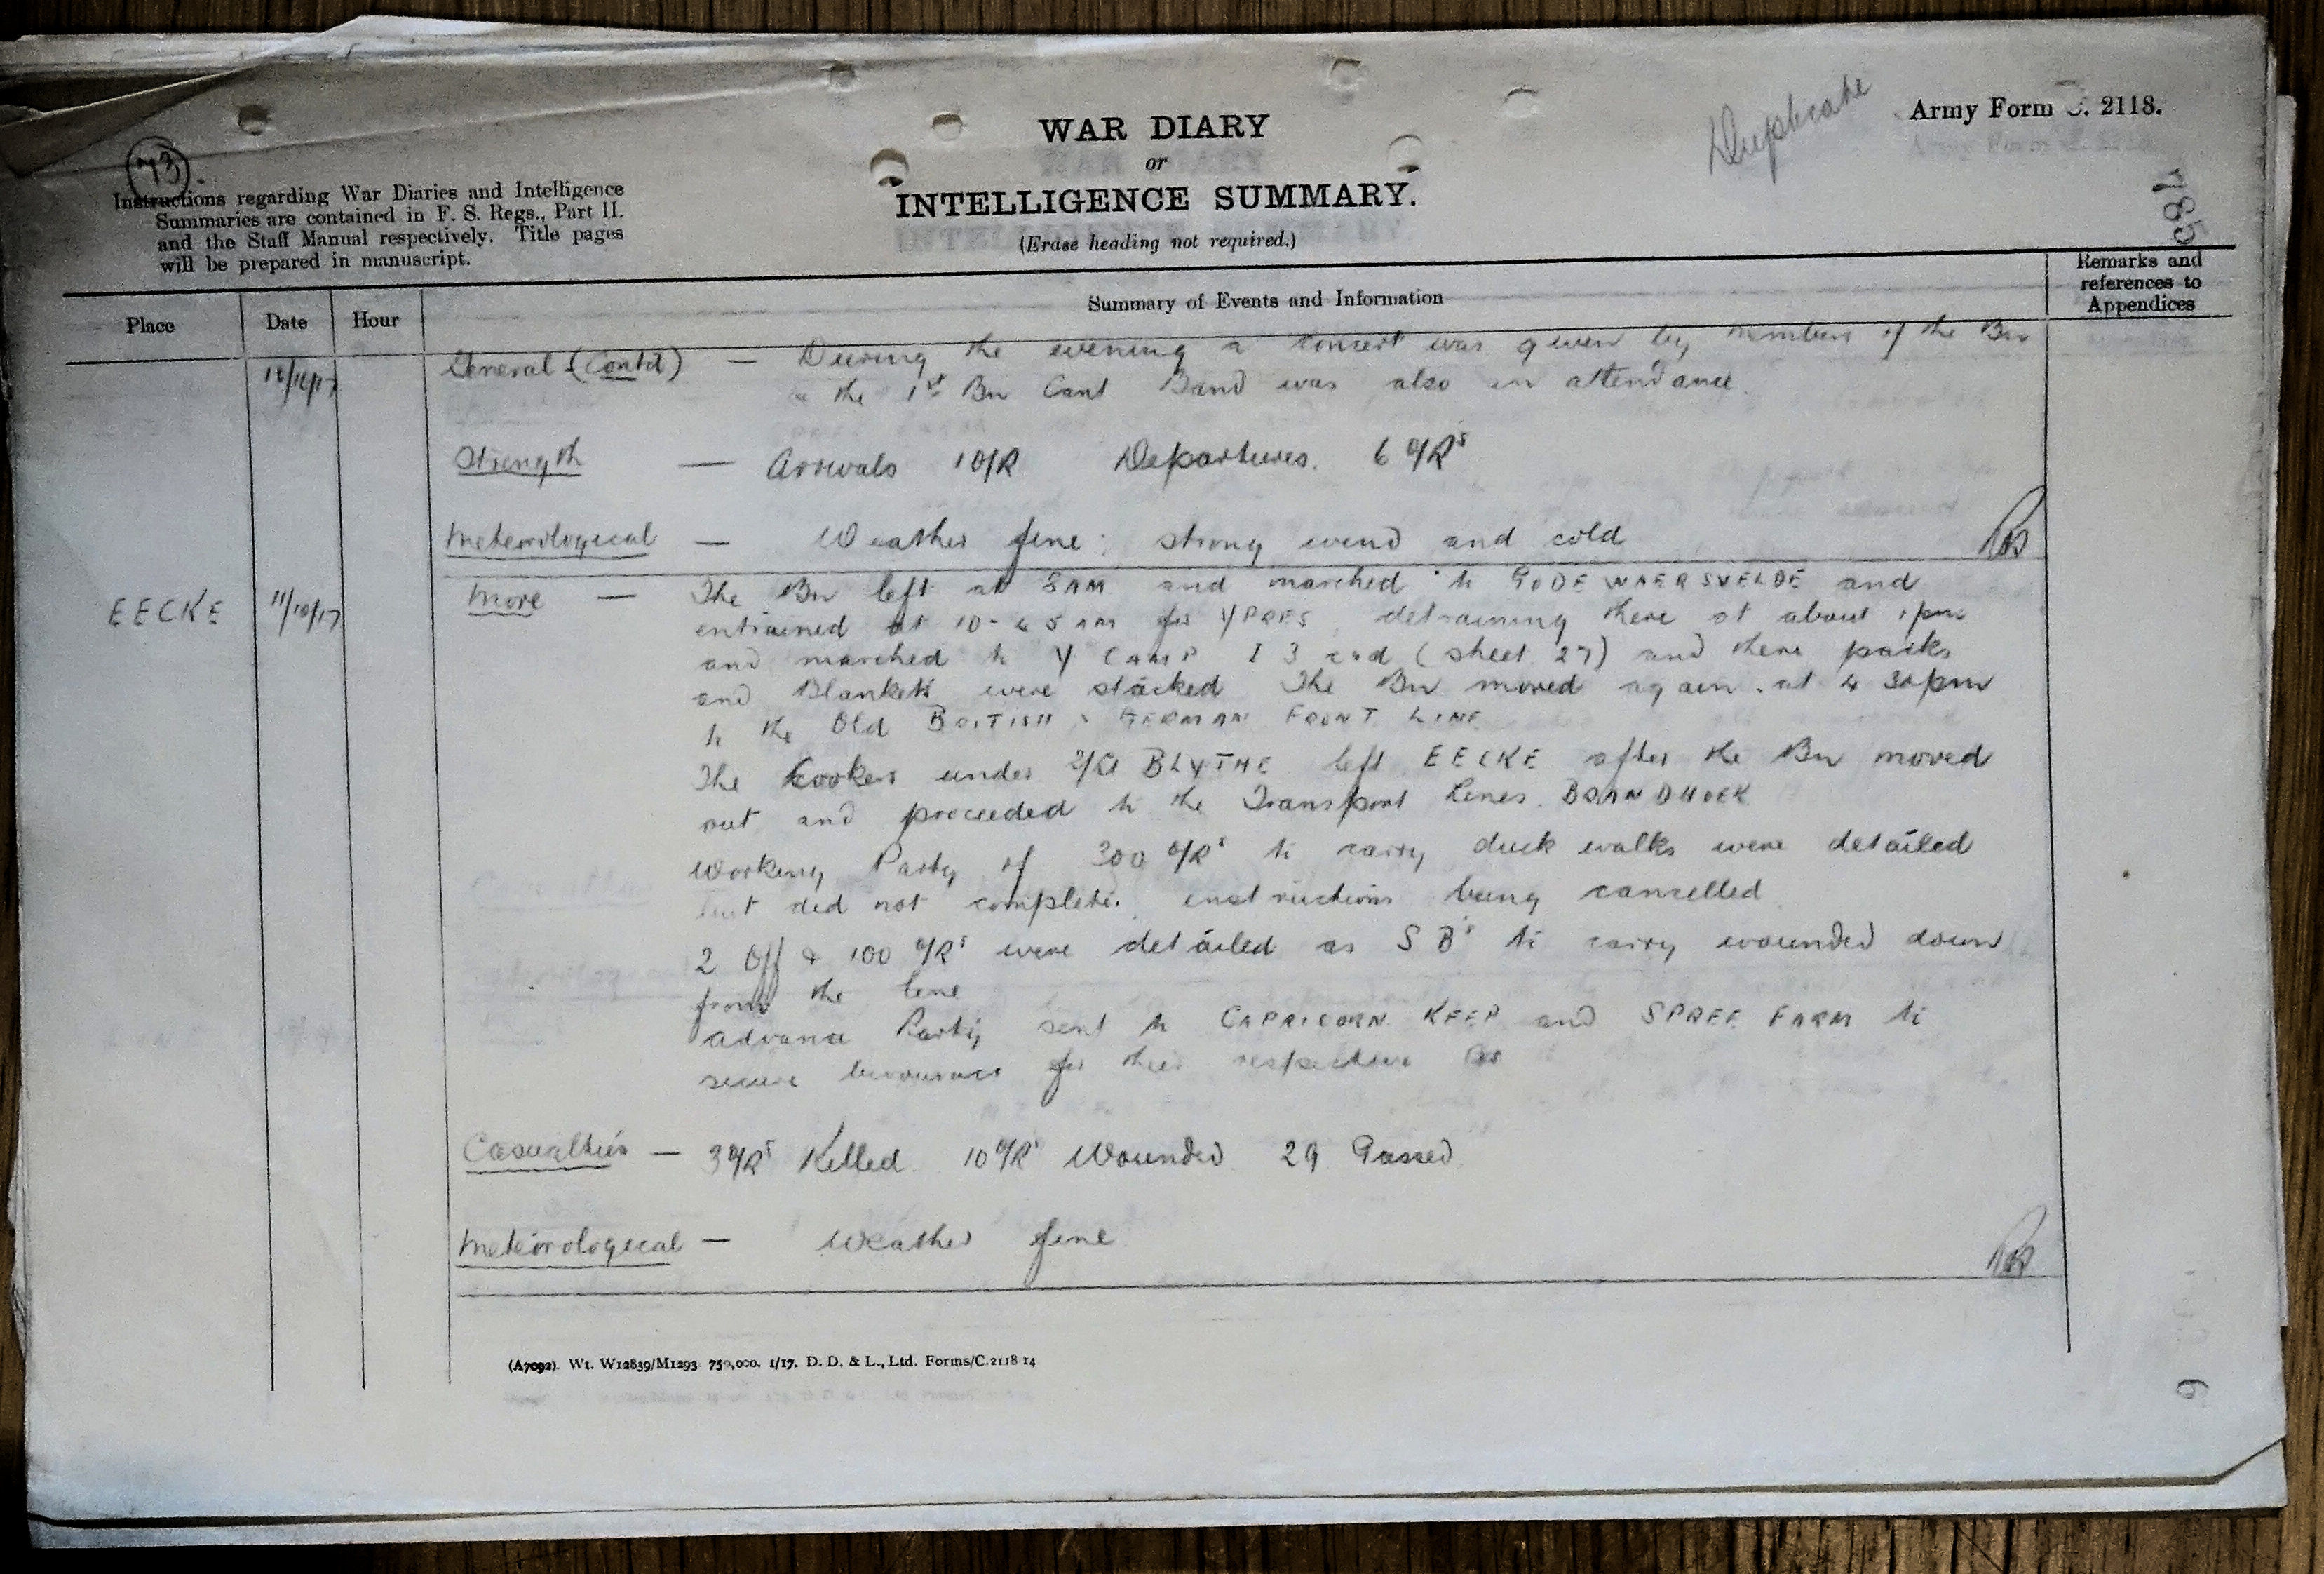 73.
Duplicate
Army Form C. 2118.
785
WAR DIARY
or
INTELLIGENCE SUMMARY.
(Erase heading not required.)
Instructions regarding War Diaries and Intelligence
Summaries are contained in F. S. Regs., Part II.
and the Staff Manual respectively. Title pages
will be prepared in manuscript.
Place Date Hour Summary of Events and Information Remarks and references to Appendices
10/10/17 General (Contd) — During the evening a concert was given by members of the Bn
the 1st Bn Cant Band was also in attendance.
Strength — Arrivals 1 O/R Departures. 6 O/Rs
Meteorological — Weather fine; strong wind and cold
EECKE 11/10/17 Move — The Bn left at 8AM and marched to GODEWAERSVELDE and
entrained at 10-45 AM for YPRES, detraining there at about 1pm
and marched to Y CAMP I 3 c & d (sheet 27) and there packs
and Blankets were stacked The Bn moved again at 4 30pm
to the Old BRITISH & GERMAN FRONT LINE
The Cookers under 2/Lt BLYTHE left EECKE after the Bn moved
out and proceeded to the Transport Lines. BRANDHOEK
Working Party of 300 O/Rs to carry duck walks were detailed
but did not complete. instructions being cancelled
2 Off & 100 O/Rs were detailed as S Bs to carry wounded down
from the line
Advance Party sent to CAPRICORN KEEP and SPREE FARM to
secure bivouacs for their respective
Casualties — 3 O/Rs Killed. 10 O/Rs Wounded 29 Gassed
Meteorological — Weather fine
(A7092). Wt. W12839/M1293. 750,000. 1/17. D. D. & L., Ltd. Forms/C.2118/14
9